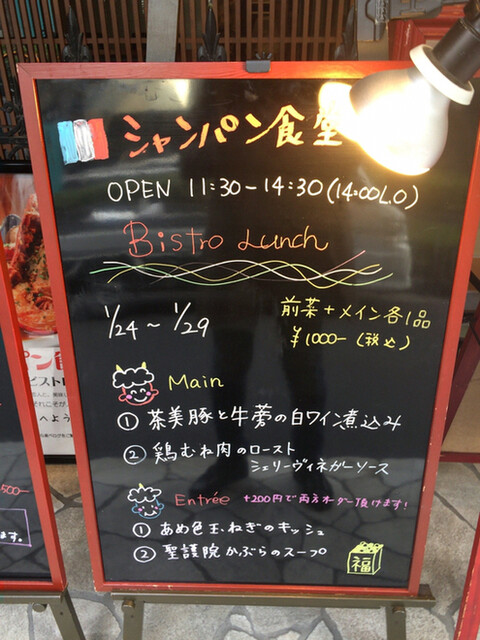 シャンパン食堂
OPEN 11:30-14:30(14:00L.O)
Bistro Lunch
1/24~1/29
前菜+メイン各1品
¥1000-(税込)
Main
① 茶美豚と牛蒡の白ワイン煮込み
② 鶏むね肉のロースト
シェリーヴィネガーソース
Entrée +200円で両方オーダー頂けます!
① あめ色玉ねぎのキッシュ
② 聖護院かぶらのスープ
福